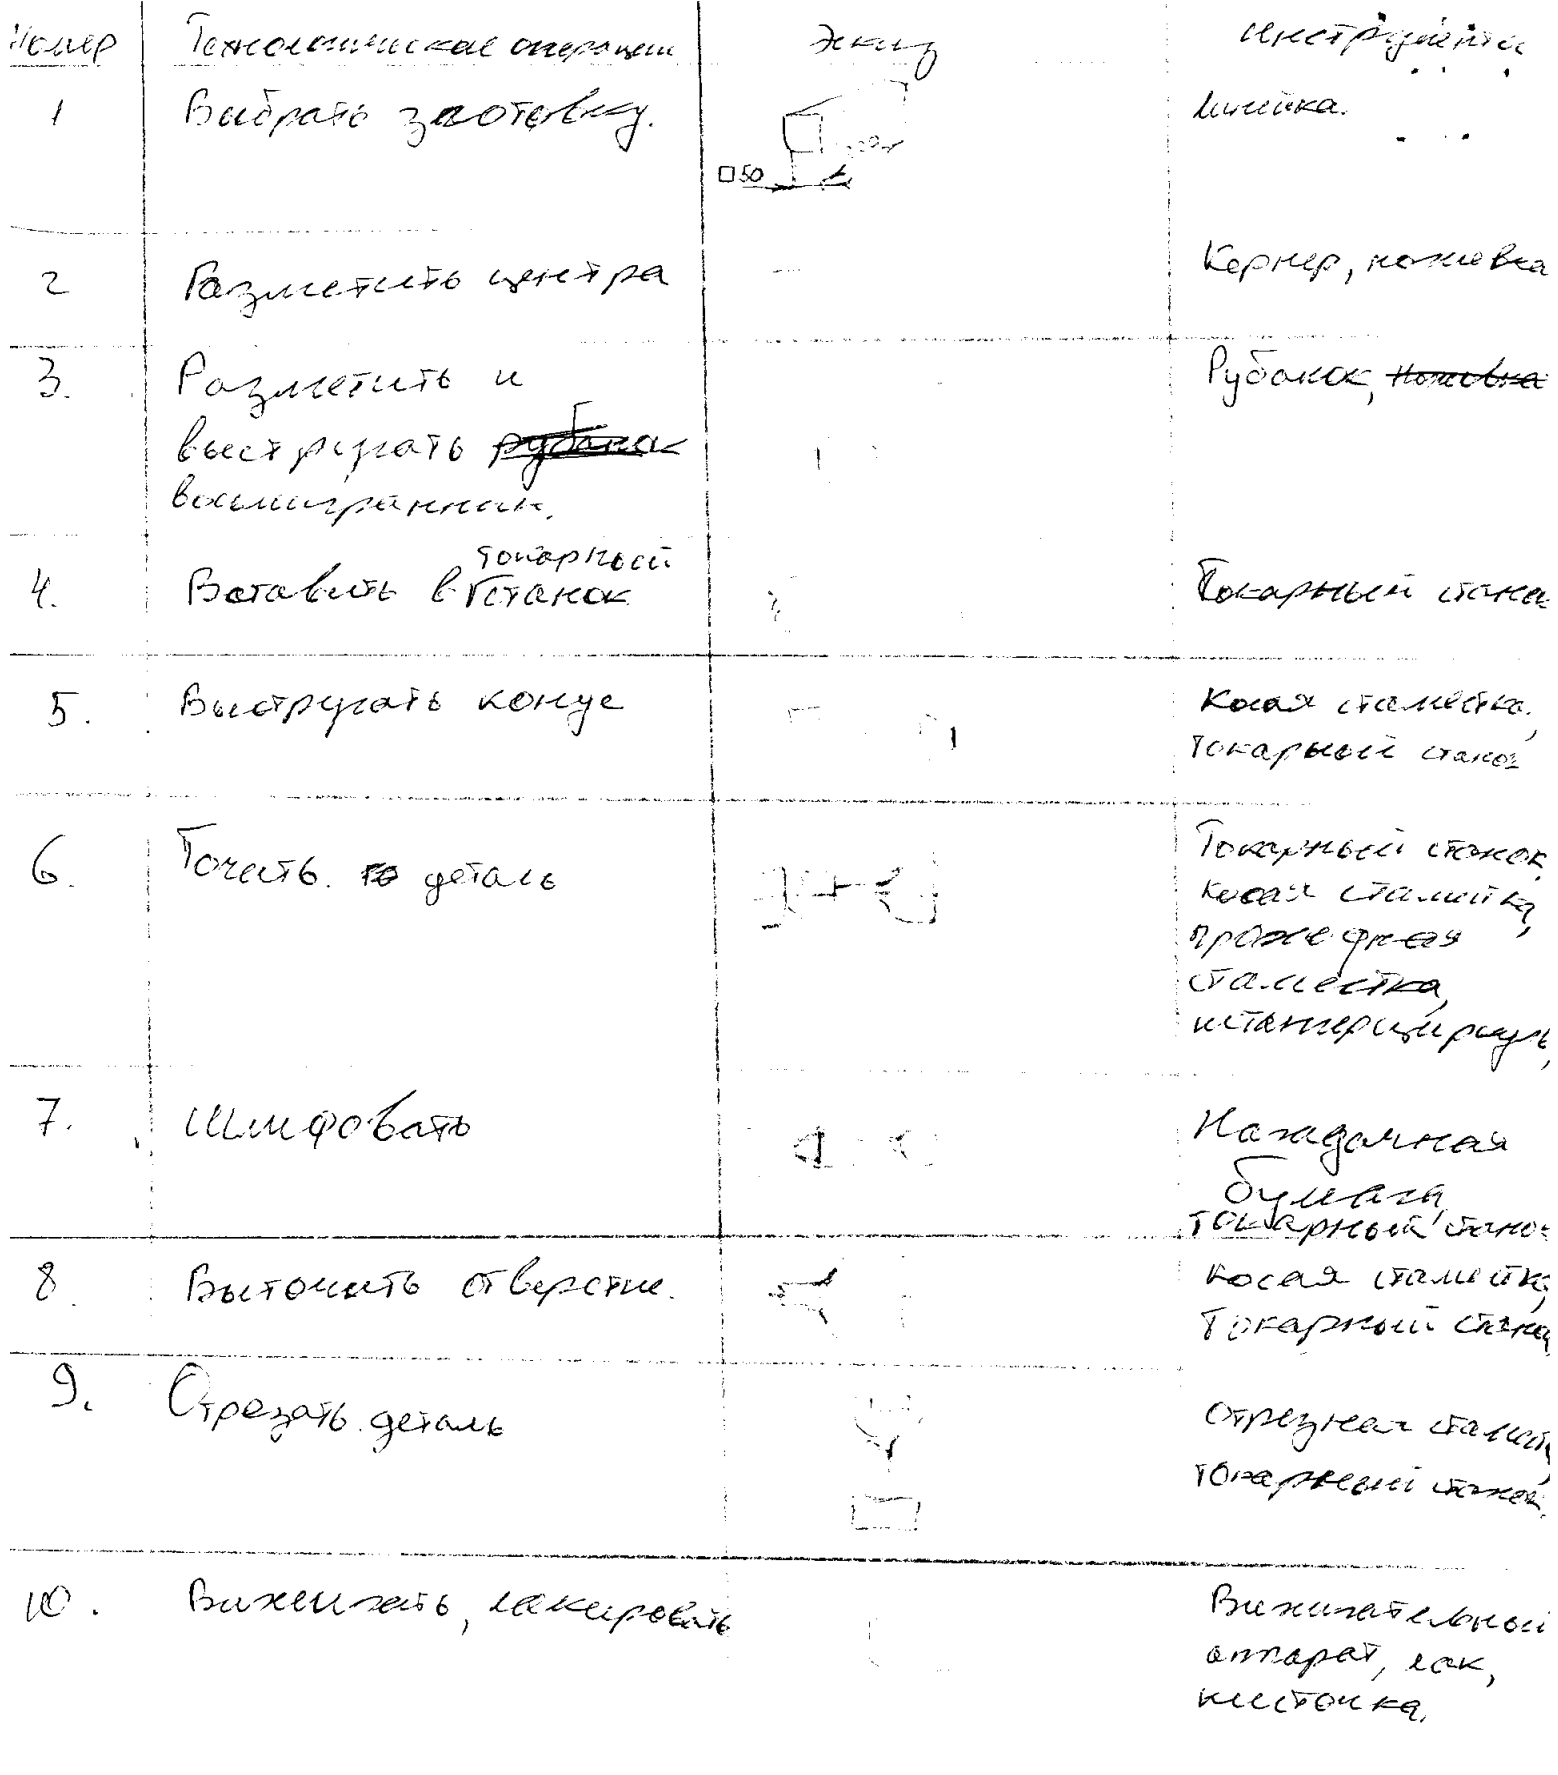 Номер Технологическая операция Эскиз Инструменты
1 Выбрать заготовку. Линейка.
□50
2 Разметить центра Кернер, ножовка
3. Разметить и Рубанок,
выстругать
восьмигранник.
токарный
4. Вставить в станок Токарный станок
5. Выстругать конус Косая стамеска,
токарный станок
6. Точить деталь Токарный станок,
косая стамеска,
стамеска,
штангерциркуль,
7. Шлифовать Наждачная
бумага,
токарный станок
8. Выточить отверстие. Косая стамеска,
Токарный станок
9. Отрезать деталь Отрезная стамеска,
токарный станок.
10. Выжигать, лакировать Выжигательный
аппарат, лак,
кисточка.